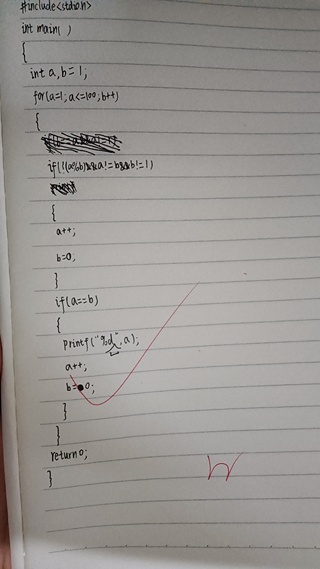 #include<stdio.h>
int main( )
{
int a,b=1;
for(a=1;a<=100;b++)
{
if(!(a%b)&&a!=b&&b!=1)
{
a++;
b=0;
}
if(a==b)
{
printf("%d",a);
a++;
b=0;
}
}
return 0;
}